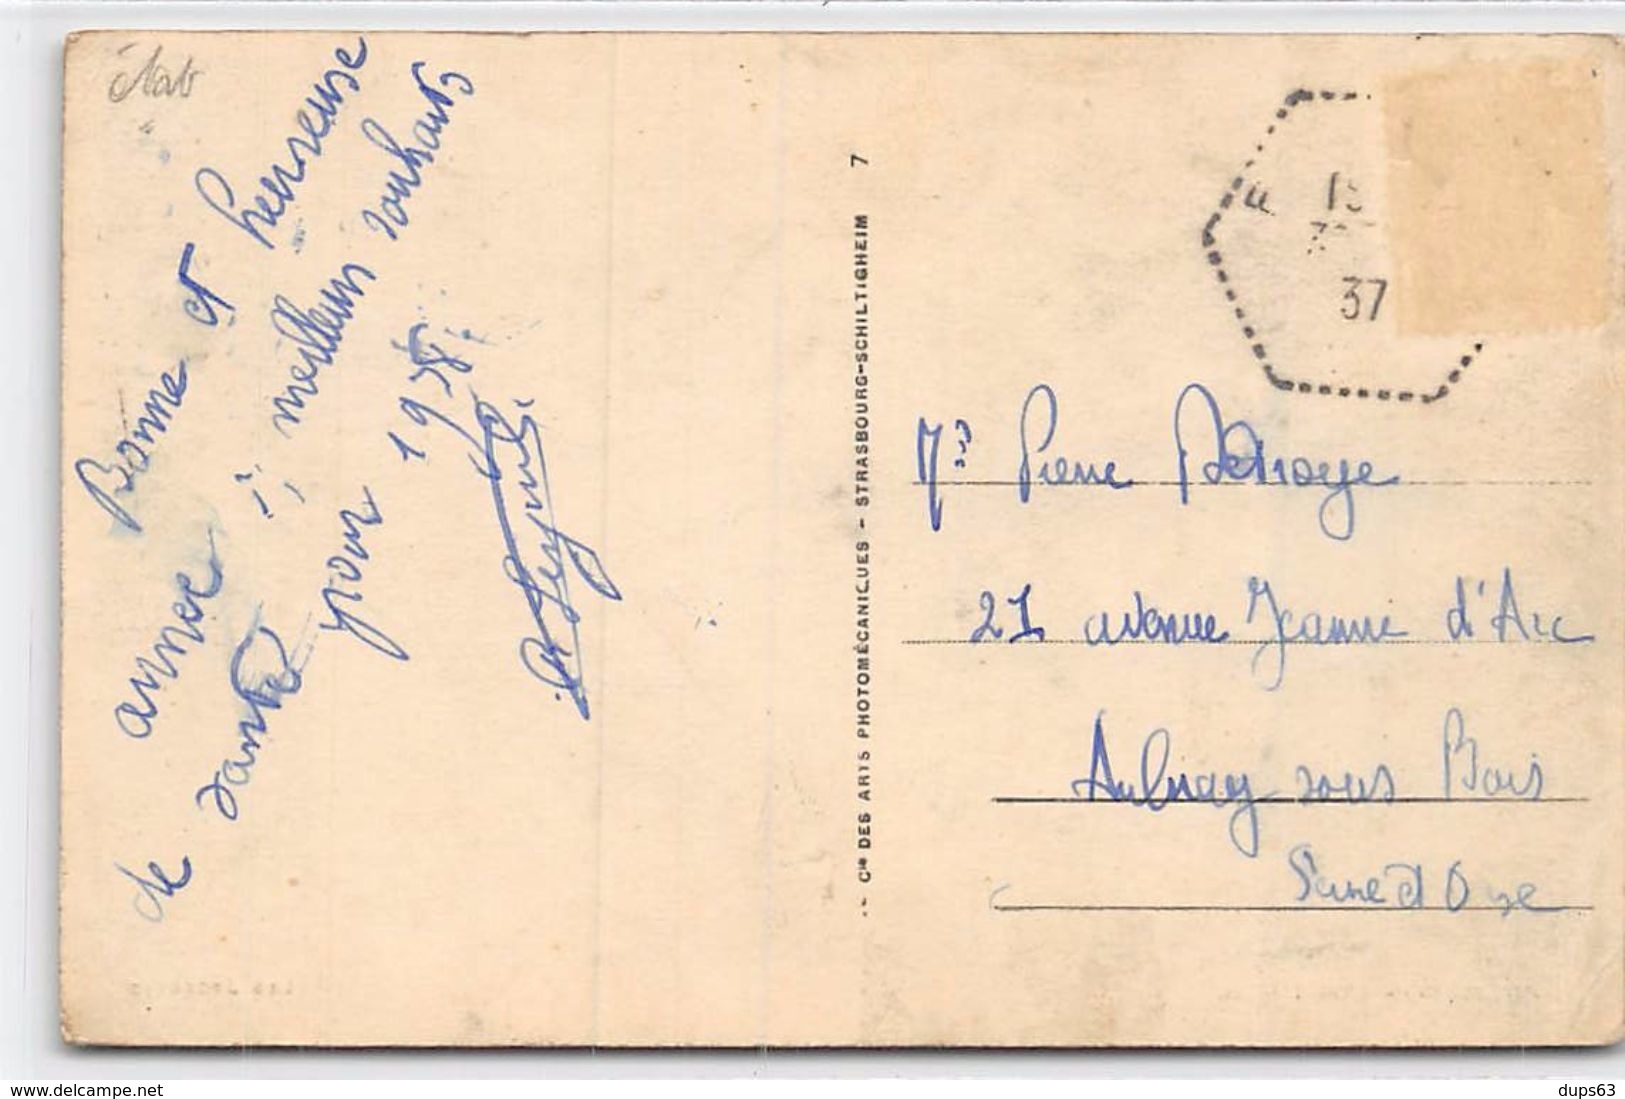 Bonne et heureuse
année meilleurs souhaits
de santé pour 1938
Cie DES ARTS PHOTOMÉCANIQUES - STRASBOURG-SCHILTIGHEIM 7
15
37
Pierre
21 avenue Jeanne d'Arc
Aulnay sous Bois
Seine et Oise
www.delcampe.net
dups63